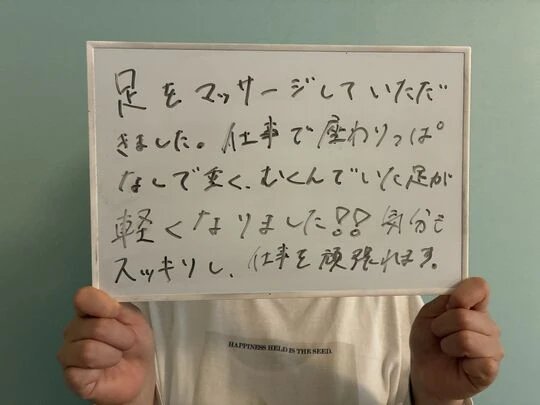 足をマッサージしていただ
きました。仕事で座わりっぱ
なしで重く、むくんでいた足が
軽くなりました!! 気分も
スッキリし、仕事を頑張れます。
HAPPINESS HELD IS THE SEED.